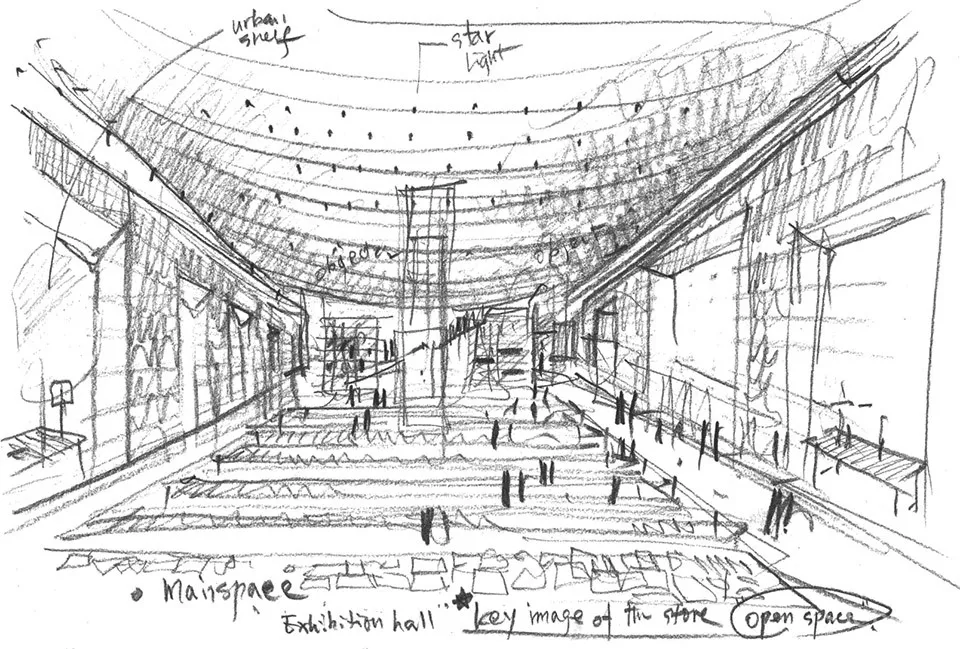 urban
shelf
star
light
• Mainspace
"Exhibition hall" ★ key image of the store open space